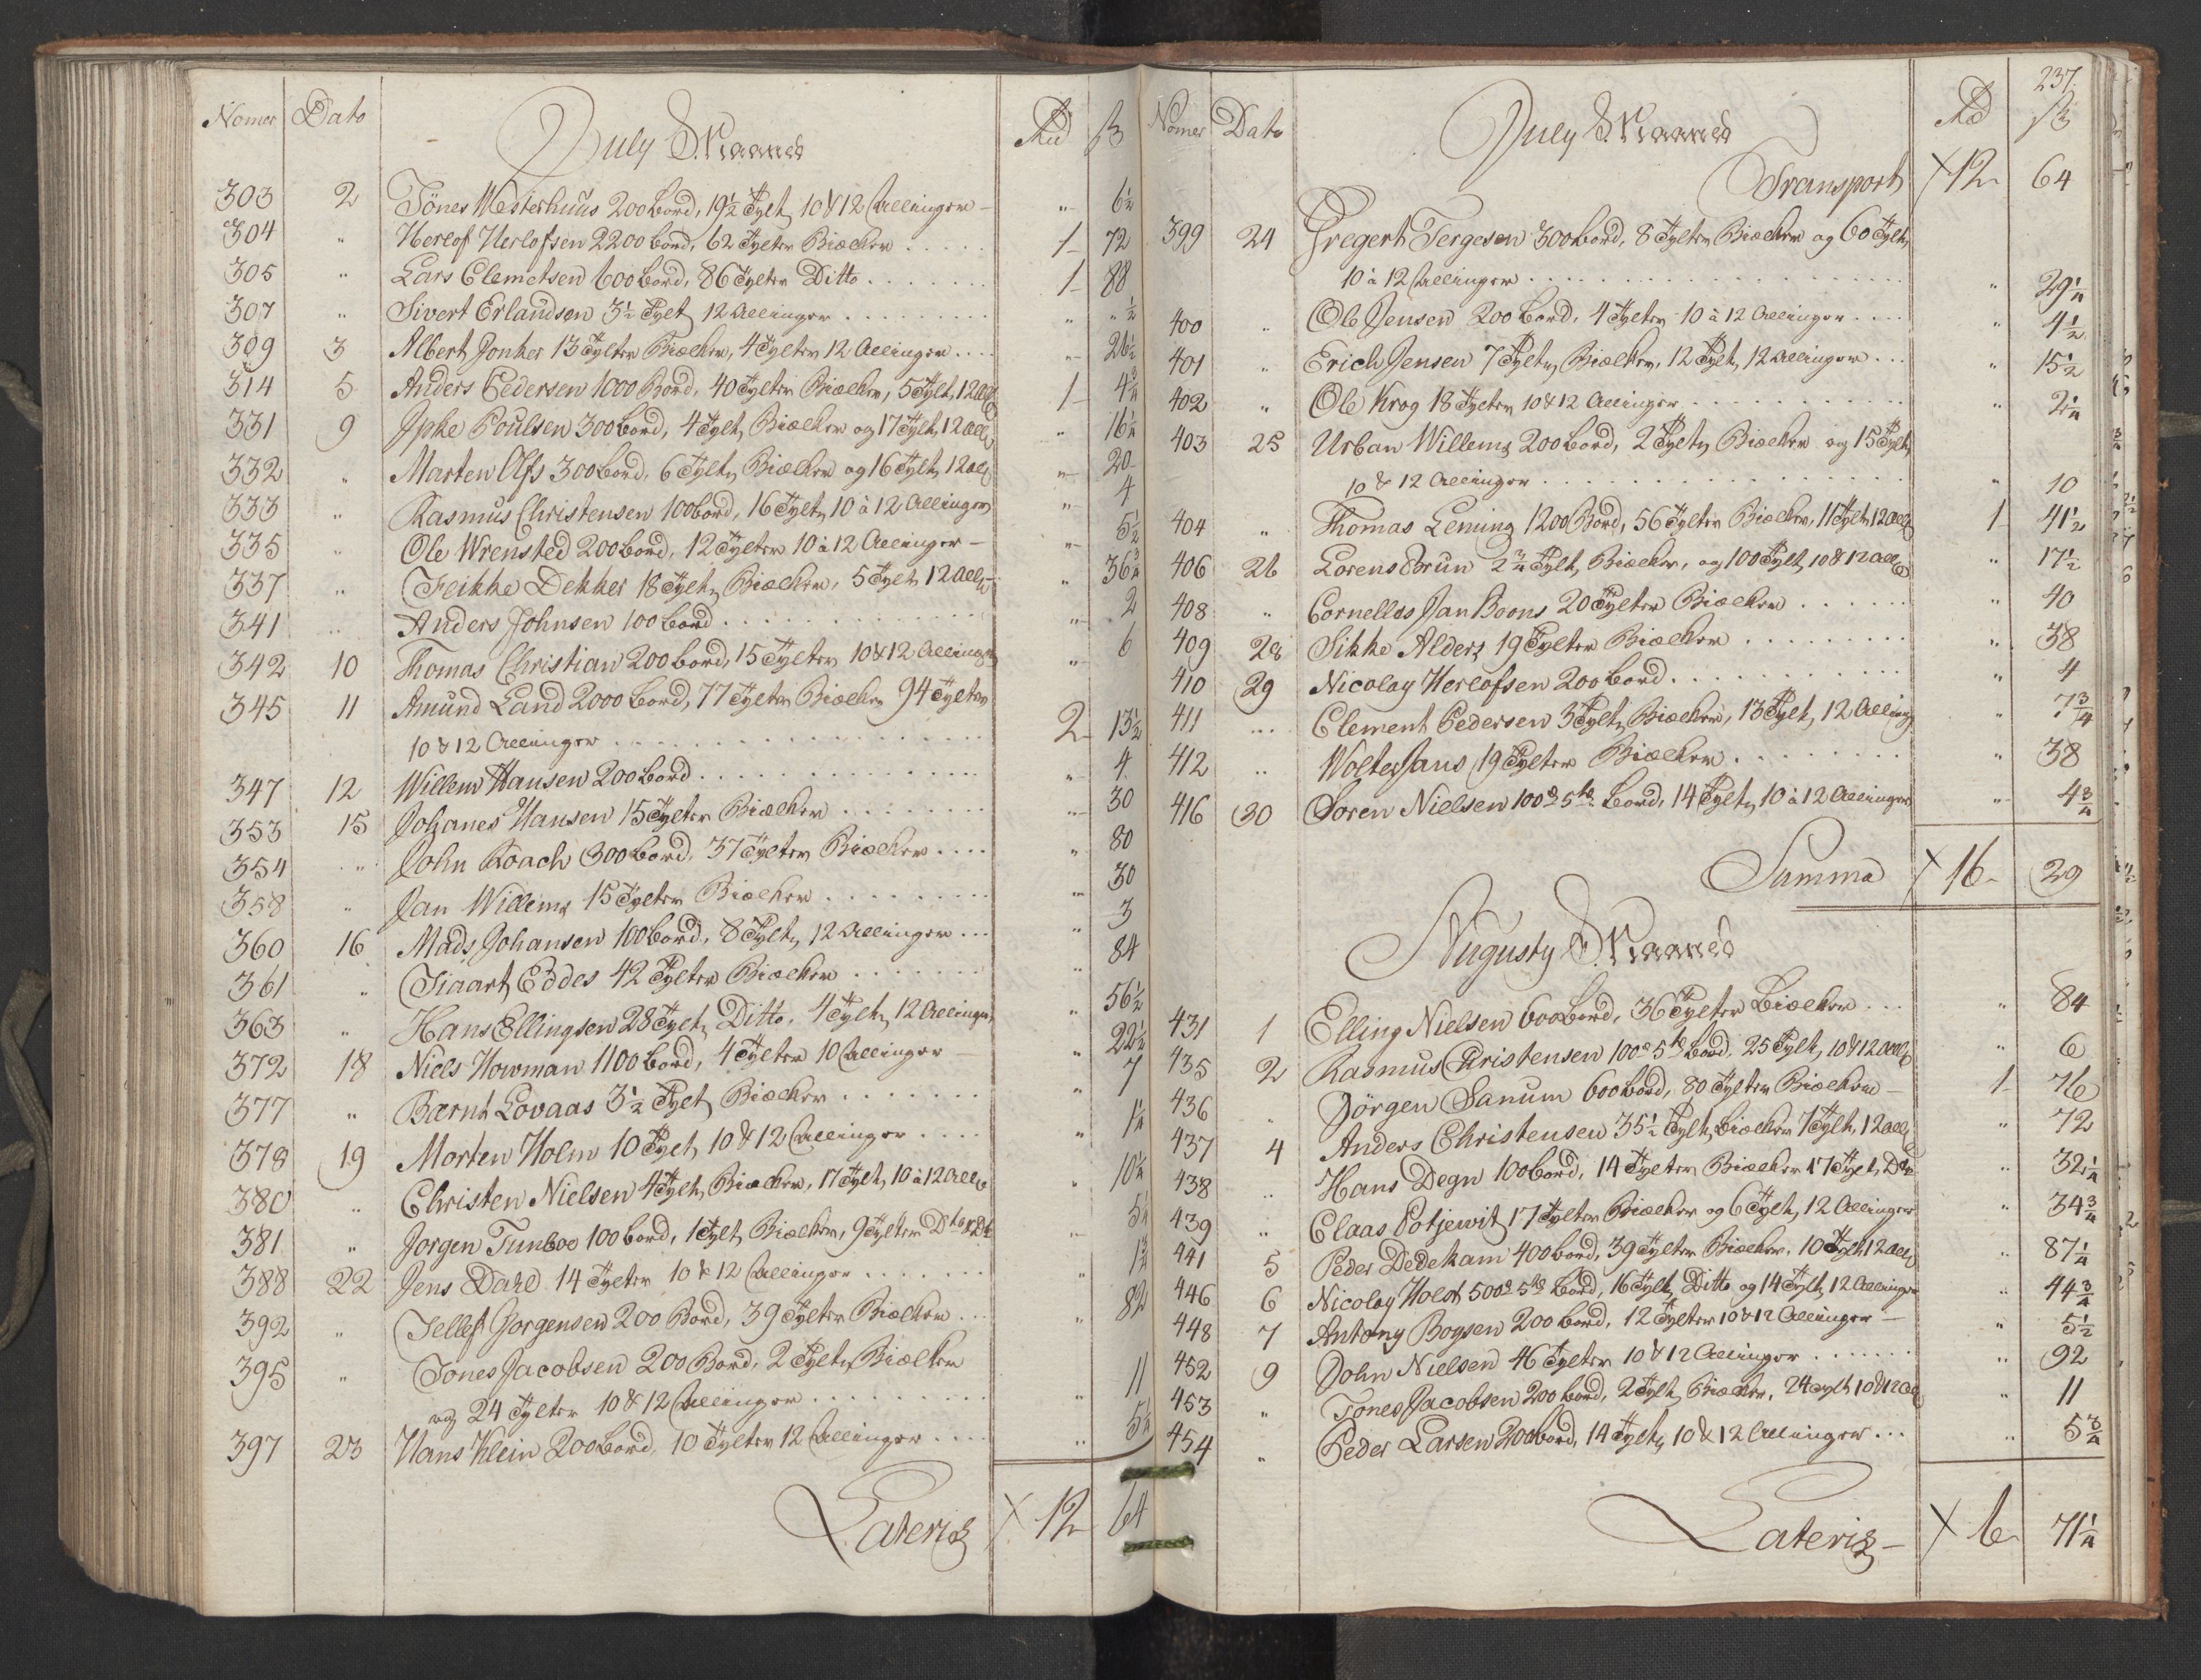 Nomer Dato July Maaned Rd ß
303 2 Tönes Westerhuus 200 bord, 19½ Tylt 10 & 12 Allinger – „ 6½
304 „ Herlof Herlofsen 2200 bord, 62 Tylter Biælker 1 72
305 „ Lars Clemetsen 600 bord, 86 Tylter Ditto 1 88
307 „ Sivert Erlandsen 3½ Tylt 12 Allinger „ „ ½
309 3 Albert Jonker 13 Tylter Biælker, 4 Tylter 12 Allinger „ 26½
314 5 Anders Pedersen 1000 Bord, 40 Tylter Biælker, 5 Tylt 12 All 1 4¾
331 9 Ipke Poulsen 300 bord, 4 Tylt Biælker og 17 Tylt 12 All „ 16¼
332 „ Marten Olfs 300 bord, 6 Tylt Biælker og 16 Tylt 12 all „ 20
333 „ Rasmus Christensen 100 bord, 16 Tylt 10 à 12 Allinger „ 4
335 „ Ole Wrensted 200 bord, 12 Tylter 10 à 12 Allinger – „ 5½
337 „ Feikke Dekker 18 Tylt Biælker, 5 Tylt 12 All „ 36¾
341 „ Anders Johnsen 100 bord „ 2
342 10 Thomas Christian 200 bord, 15 Tylter 10 & 12 Allinger „ 6
345 11 Amund Land 2000 bord, 77 Tylter Biælker 94 Tylter
10 & 12 Allinger 2 13½
347 12 Willem Hansen 200 bord „ 4
353 15 Johanes Hansen 15 Tylter Biælker „ 30
354 „ John Roach 300 bord, 37 Tylter Biælker „ 80
358 „ Jan Willems 15 Tylter Biælker „ 30
360 16 Mads Johansen 100 bord, 8 Tylt 12 Allinger „ 3
361 „ Siaart Eddes 42 Tylter Biælker „ 84
363 „ Hans Ellingsen 28 Tylt Ditto, 4 Tylt 12 Allinger „ 56½
372 18 Niels Howman 1100 bord, 4 Tylter 10 Allinger „ 22½
377 „ Bærnt Lovaas 3½ Tylt Biælker „ 7
378 19 Morten Holm 10 Tylt 10 & 12 Allinger „ 1¼
380 „ Christen Nielsen 4 Tylt Biælker, 17 Tylt 10 à 12 All „ 10¼
381 „ Jorgen Tunboo 100 bord, 1 Tylt Biælker, 9 Tylter „
388 22 Jens Dahl 14 Tylter 10 & 12 Allinger „ 1¾
392 „ Tellef Jorgensen 200 Bord, 39 Tylter Biælker „ 82
395 „ Tones Jacobsen 200 Bord, 2 Tylt Biælker
og 24 Tylter 10 & 12 Allinger „ 11
397 23 Hans Klein 200 bord, 10 Tylter 12 Allinger „ 5½
Lateris 12 64
237.
Nomer Dato July Maaned Rd ß
Transport 12 64
399 24 Gregert Tergesen 300 bord, 8 Tylter Biælker og 60 Tylt
10 à 12 Allinger „ 29¼
400 „ Ole Jensen 200 bord, 4 Tylter 10 à 12 Allinger „ 4½
401 „ Erich Jensen 7 Tylt Biælker, 12 Tylt 12 Allinger „ 15½
402 „ Ole Krog 18 Tylter 10 & 12 Allinger „ 2¼
403 25 Urban Willems 200 bord, 2 Tylt Biælker og 15 Tylt
10 & 12 Allinger „ 10
404 „ Thomas Lening 1200 Bord, 56 Tylter Biælker, 11 Tylt 12 All 1 41½
406 26 Lorens Brun 2¾ Tylt Biælker, og 100 Tylt 10 & 12 All „ 17½
408 „ Cornelles Jan Boons 20 Tylter Biælker „ 40
409 28 Sikke Alders 19 Tylter Biælker „ 38
410 29 Nicolay Herlofsen 200 bord „ 4
411 „ Clement Pedersen 3 Tylt Biælker, 13 Tylt 12 Alling „ 7¾
412 „ Wolter Jans 19 Tylter Biælker „ 38
416 30 Soren Nielsen 100 & 5te bord, 14 Tylt 10 à 12 Allinger „ 4¾
Summa 16 29
Augusty Maaned
431 1 Elling Nielsen 600 bord, 36 Tylter Biælker „ 84
435 2 Rasmus Christensen 100 & 5te bord, 25 Tylt 10 & 12 All „ 6
436 „ Jörgen Sanum 600 bord, 80 Tylter Biælker – 1 76
437 4 Anders Christensen 35½ Tylt Biælker 7 Tylt 12 All „ 72
438 „ Hans Degn 100 bord, 14 Tylter Biælker 17 Tylt Dto „ 32¼
439 „ Claas Potjewit 17 Tylter Biælker og 6 Tylt 12 Allinger „ 34¾
441 5 Peder Dedekam 400 bord, 39 Tylter Biælker, 10 Tylt 12 All „ 87¼
446 6 Nicolay Holst 500 & 5te bord, 16 Tylt Ditto og 14 Tylt 12 Allinger „ 44¾
448 7 Antony Boysen 200 bord, 12 Tylter 10 & 12 Allinger – „ 5½
452 9 John Nielsen 46 Tylter 10 & 12 Allinger „ 92
453 „ Tones Jacobsen 200 bord, 2 Tylt Biælker, 24 Tylt 10 & 12 All „ 11
454 „ Peder Larsen 200 bord, 14 Tylt 10 & 12 Allinger „ 5¾
Lateris – 6 71¼